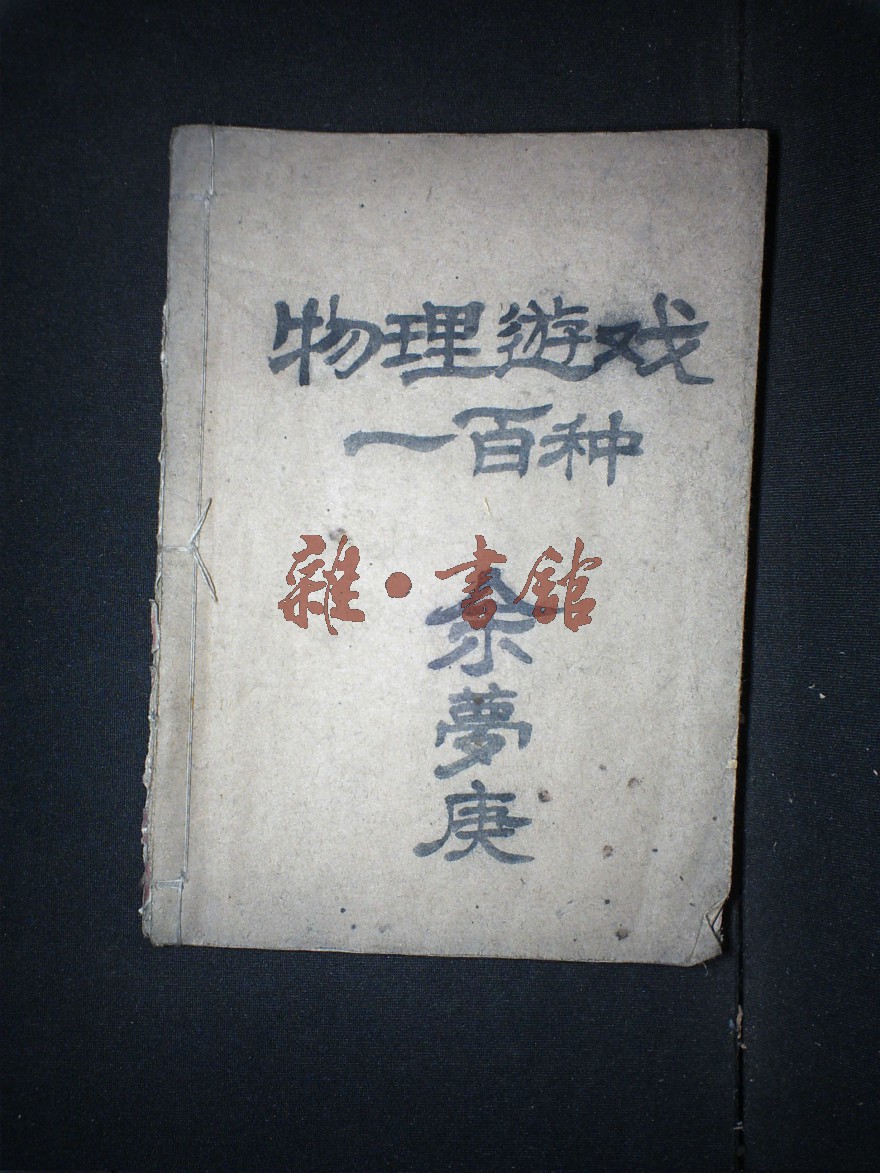 物理遊戏
一百种
雜·書館
余夢庚